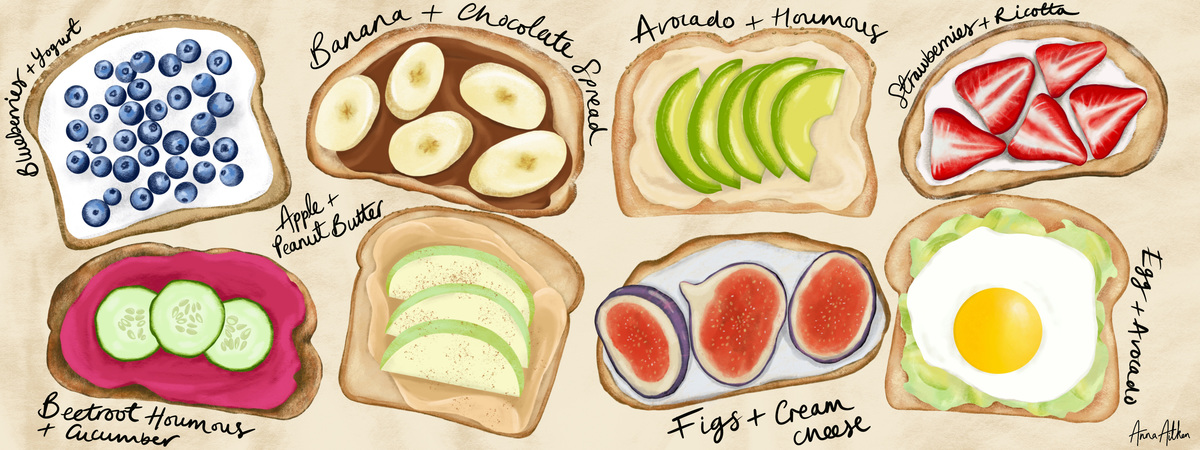 Blueberries + Yogurt
Banana + Chocolate Spread
Avocado + Houmous
Strawberries + Ricotta
Apple +
Peanut Butter
Beetroot Houmous
+ Cucumber
Figs + Cream
cheese
Egg + Avocado
Anna Aitken